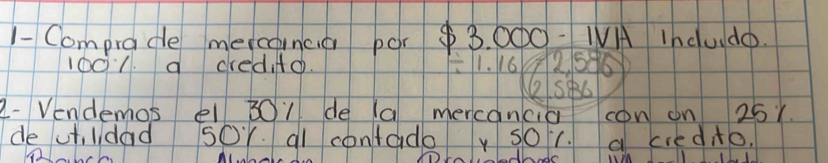 1- Compra de mercancia por $3.000 - IVA Incluido.
100% a credito. ÷ 1.16 2,586
2,586
2- Vendemos el 30% de la mercancia con un 25%
de utilidad 50% al contado y 50% a credito.
Banco Almacen Proveedores IVA